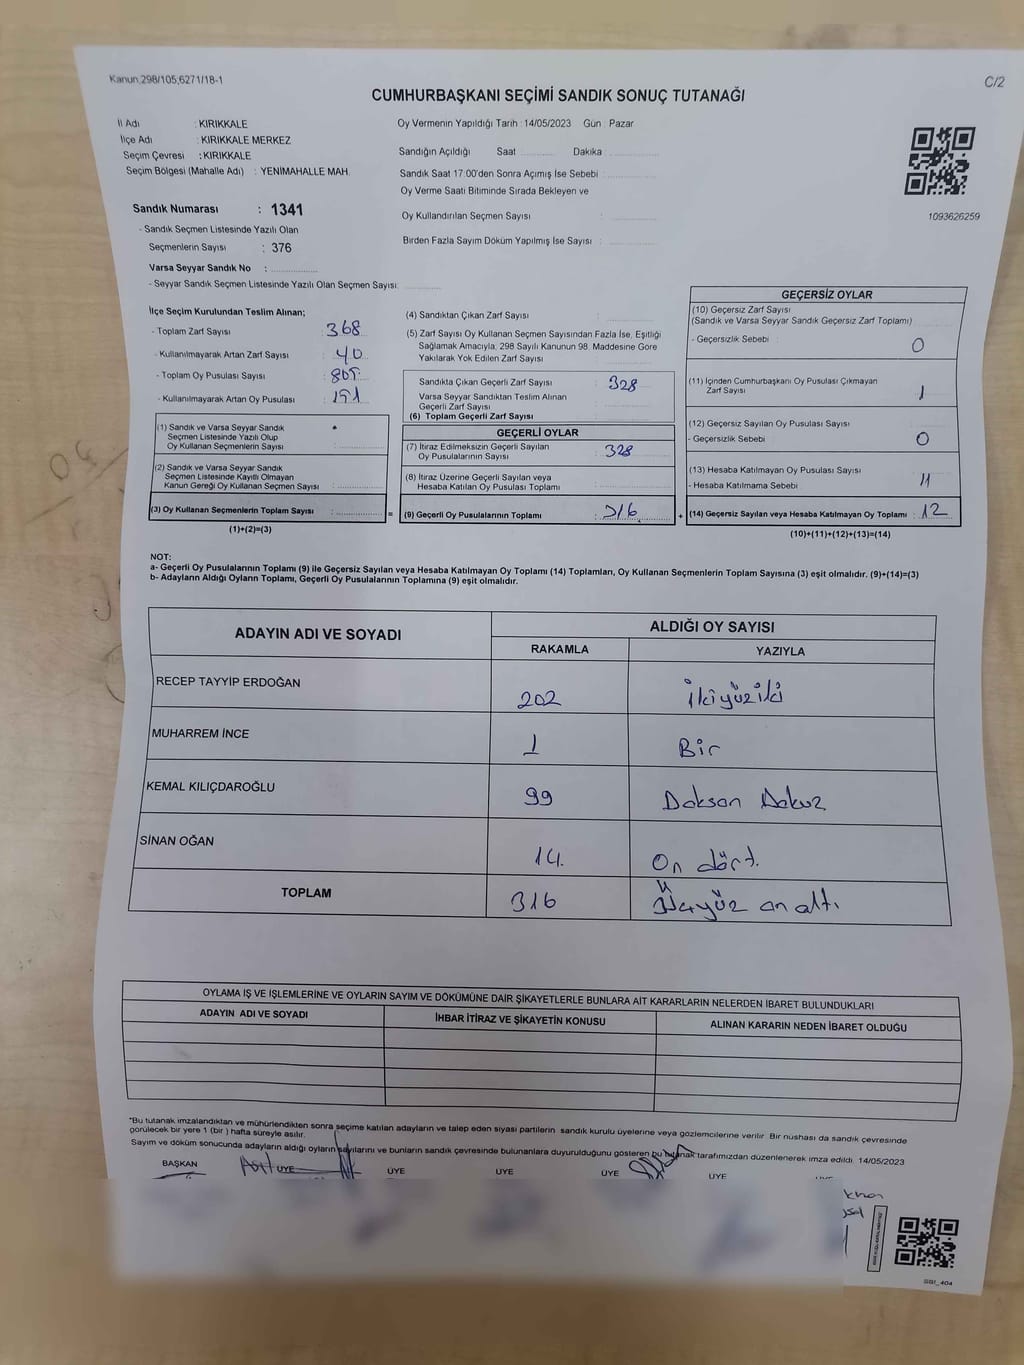 Kanun,298/105,6271/18-1
C/2
CUMHURBAŞKANI SEÇİMİ SANDIK SONUÇ TUTANAĞI
İl Adı : KIRIKKALE
İlçe Adı : KIRIKKALE MERKEZ
Seçim Çevresi : KIRIKKALE
Seçim Bölgesi (Mahalle Adı) : YENİMAHALLE MAH.
Oy Vermenin Yapıldığı Tarih : 14/05/2023 Gün : Pazar
Sandığın Açıldığı Saat Dakika
Sandık Saat 17:00'den Sonra Açımış İse Sebebi :
Oy Verme Saati Bitiminde Sırada Bekleyen ve
Oy Kullandırılan Seçmen Sayısı :
Birden Fazla Sayım Döküm Yapılmış İse Sayısı :
1093626259
Sandık Numarası : 1341
- Sandık Seçmen Listesinde Yazılı Olan
Seçmenlerin Sayısı : 376
Varsa Seyyar Sandık No :
- Seyyar Sandık Seçmen Listesinde Yazılı Olan Seçmen Sayısı:
İlçe Seçim Kurulundan Teslim Alınan;
- Toplam Zarf Sayısı : 368
- Kullanılmayarak Artan Zarf Sayısı : 40
- Toplam Oy Pusulası Sayısı :
- Kullanılmayarak Artan Oy Pusulası :
(1) Sandık ve Varsa Seyyar Sandık
Seçmen Listesinde Yazılı Olup
Oy Kullanan Seçmenlerin Sayısı :
(2) Sandık ve Varsa Seyyar Sandık
Seçmen Listesinde Kayıtlı Olmayan
Kanun Gereği Oy Kullanan Seçmen Sayısı :
(3) Oy Kullanan Seçmenlerin Toplam Sayısı :
(1)+(2)=(3)
(4) Sandıktan Çıkan Zarf Sayısı :
(5) Zarf Sayısı Oy Kullanan Seçmen Sayısından Fazla İse, Eşitliği
Sağlamak Amacıyla, 298 Sayılı Kanunun 98. Maddesine Göre
Yakılarak Yok Edilen Zarf Sayısı :
Sandıkta Çıkan Geçerli Zarf Sayısı : 328
Varsa Seyyar Sandıktan Teslim Alınan
Geçerli Zarf Sayısı :
(6) Toplam Geçerli Zarf Sayısı :
GEÇERLİ OYLAR
(7) İtiraz Edilmeksizin Geçerli Sayılan
Oy Pusulalarının Sayısı : 328
(8) İtiraz Üzerine Geçerli Sayılan veya
Hesaba Katılan Oy Pusulası Toplamı :
= (9) Geçerli Oy Pusulalarının Toplamı : 316 +
GEÇERSİZ OYLAR
(10) Geçersiz Zarf Sayısı
(Sandık ve Varsa Seyyar Sandık Geçersiz Zarf Toplamı)
- Geçersizlik Sebebi : 0
(11) İçinden Cumhurbaşkanı Oy Pusulası Çıkmayan
Zarf Sayısı 1
(12) Geçersiz Sayılan Oy Pusulası Sayısı
- Geçersizlik Sebebi : 0
(13) Hesaba Katılmayan Oy Pusulası Sayısı
- Hesaba Katılmama Sebebi : 11
(14) Geçersiz Sayılan veya Hesaba Katılmayan Oy Toplamı : 12
(10)+(11)+(12)+(13)=(14)
NOT:
a- Geçerli Oy Pusulalarının Toplamı (9) ile Geçersiz Sayılan veya Hesaba Katılmayan Oy Toplamı (14) Toplamları, Oy Kullanan Seçmenlerin Toplam Sayısına (3) eşit olmalıdır. (9)+(14)=(3)
b- Adayların Aldığı Oyların Toplamı, Geçerli Oy Pusulalarının Toplamına (9) eşit olmalıdır.
ADAYIN ADI VE SOYADI ALDIĞI OY SAYISI
RAKAMLA YAZIYLA
RECEP TAYYİP ERDOĞAN 202 İkiyüziki
MUHARREM İNCE 1 Bir
KEMAL KILIÇDAROĞLU 99 Doksan Dokuz
SİNAN OĞAN 14. On dört.
TOPLAM 316 Üçyüz on altı
OYLAMA İŞ VE İŞLEMLERİNE VE OYLARIN SAYIM VE DÖKÜMÜNE DAİR ŞİKAYETLERLE BUNLARA AİT KARARLARIN NELERDEN İBARET BULUNDUKLARI
ADAYIN ADI VE SOYADI İHBAR İTİRAZ VE ŞİKAYETİN KONUSU ALINAN KARARIN NEDEN İBARET OLDUĞU
*Bu tutanak imzalandıktan ve mühürlendikten sonra seçime katılan adayların ve talep eden siyasi partilerin sandık kurulu üyelerine veya gözlemcilerine verilir. Bir nushası da sandık çevresinde
görülecek bir yere 1 (bir ) hafta süreyle asılır.
Sayım ve döküm sonucunda adayların aldığı oyların sayılarını ve bunların sandık çevresinde bulunanlara duyurulduğunu gösteren bu tutanak tarafımızdan düzenlenerek imza edildi. 14/05/2023
BAŞKAN ÜYE ÜYE ÜYE ÜYE ÜYE
SBİ_404